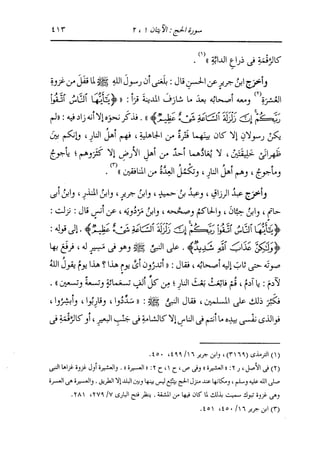 سورة الحج : الآيتان ١ ، ٢ ٤١٣
كالرَّقْمةِ فى ذراعِ الدابَّةِ»(١) .
وأخرَج ابنُ جريرٍ عن الحسنِ قال : بلَغنى أن رسولَ اللهِ ﷺ لما قفَل من غزوةِ
العُسْرَةِ(٢) ومعه أصحابُه بعدَ ما شارَف المدينةَ قرأ : « ﴿يَٰٓأَيُّهَا ٱلنَّاسُ ٱتَّقُوا۟
رَبَّكُمْ إِنَّ زَلْزَلَةَ ٱلسَّاعَةِ شَىْءٌ عَظِيمٌ﴾ » . فذكَر نحوَه إلا أنه زاد فيه : «لم
يكنْ رسولان إلا كان بينهما فَتْرةٌ من الجاهليةِ ، فهم أهلُ النارِ ، وإنكم بينَ
ظَهْرانَىْ خَلِيقَتَيْن ، لا يُعادُّهما أحدٌ من أهلِ الأرضِ إلا كَثَروهم ؛ يأجوجُ
ومأجوجُ ، وهم أهلُ النارِ ، وتكمُلُ العِدَّةُ من المنافقين»(٣) .
وأخرَج عبدُ الرزاقِ ، وعبدُ بنُ حميدٍ ، وابنُ جريرٍ ، وابنُ المنذرِ ، وابنُ أبى
حاتمٍ ، وابنُ حبَّانَ ، والحاكمُ وصحَّحه ، وابنُ مَرْدُويَه ، عن أنسٍ قال : نزَلت :
﴿يَٰٓأَيُّهَا ٱلنَّاسُ ٱتَّقُوا۟ رَبَّكُمْ إِنَّ زَلْزَلَةَ ٱلسَّاعَةِ شَىْءٌ عَظِيمٌ﴾ . إلى قولِه :
﴿وَلَٰكِنَّ عَذَابَ ٱللَّهِ شَدِيدٌ﴾ . على النبىِّ ﷺ وهو فى مَسِيرٍ له ، فرفَع بها
صوتَه حتى ثاب إليه أصحابُه ، فقال : «أتَدْرون أىُّ يومٍ هذا ؟ هذا يومُ يقولُ اللهُ
لآدمَ : يا آدمُ ، قُمْ فابعَثْ بَعْثَ النارِ ؛ مِن كلِّ ألفٍ تسعَمائةٍ وتسعةً وتسعين» .
فكبُر ذلك على المسلمين ، فقال النبىُّ ﷺ : «سَدِّدُوا ، وقارِبُوا ، وأبشِروا ،
فوالذى نفسى بيدِه ما أنتم فى الناسِ إلا كالشامةِ فى جَنْبِ البعيرِ ، أو كالرَّقْمةِ فى
(١) الترمذى (٣١٦٩) ، وابن جرير ١٦/ ٤٤٩، ٤٥٠.
(٢) فى الأصل ، ر ٢ : «العشيرة» وفى ص ، ح ١ ، ح ٢ : «العسيرة» . والعشيرة أول غزوة غزاها النبى
صلى الله عليه وسلم ، ومكانها عند منزل الحج بينبع ليس بينها وبين البلد إلا الطريق . والعسيرة هى العسرة
وهى غزوة تبوك سميت بذلك لما كان فيها من المشقة . ينظر فتح البارى ٧/ ٢٧٩، ٢٨١.
(٣) ابن جرير ١٦/ ٤٥٠، ٤٥١.